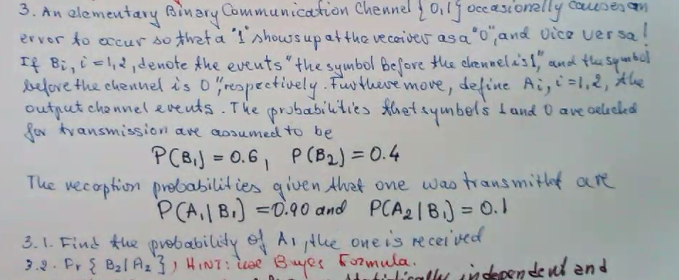 3. An elementary Binary Communication Channel {0,1} occasionally causes an
error to occur so that a "1" shows up at the receiver as a "0", and vice versa!
If Bi, i=1,2, denote the events "the symbol before the channel is 1," and the symbol
before the channel is 0", respectively. Furthermore, define Ai, i=1,2, the
output channel events. The probabilities that symbols 1 and 0 are selected
for transmission are assumed to be
P(B1) = 0.6, P(B2) = 0.4
The reception probabilities given that one was transmitted are
P(A1|B1) = 0.90 and P(A2|B1) = 0.1
3.1. Find the probability of A1, the one is received
3.2. Pr{B2|A2}, HINT: use Bayes Formula.
independent and